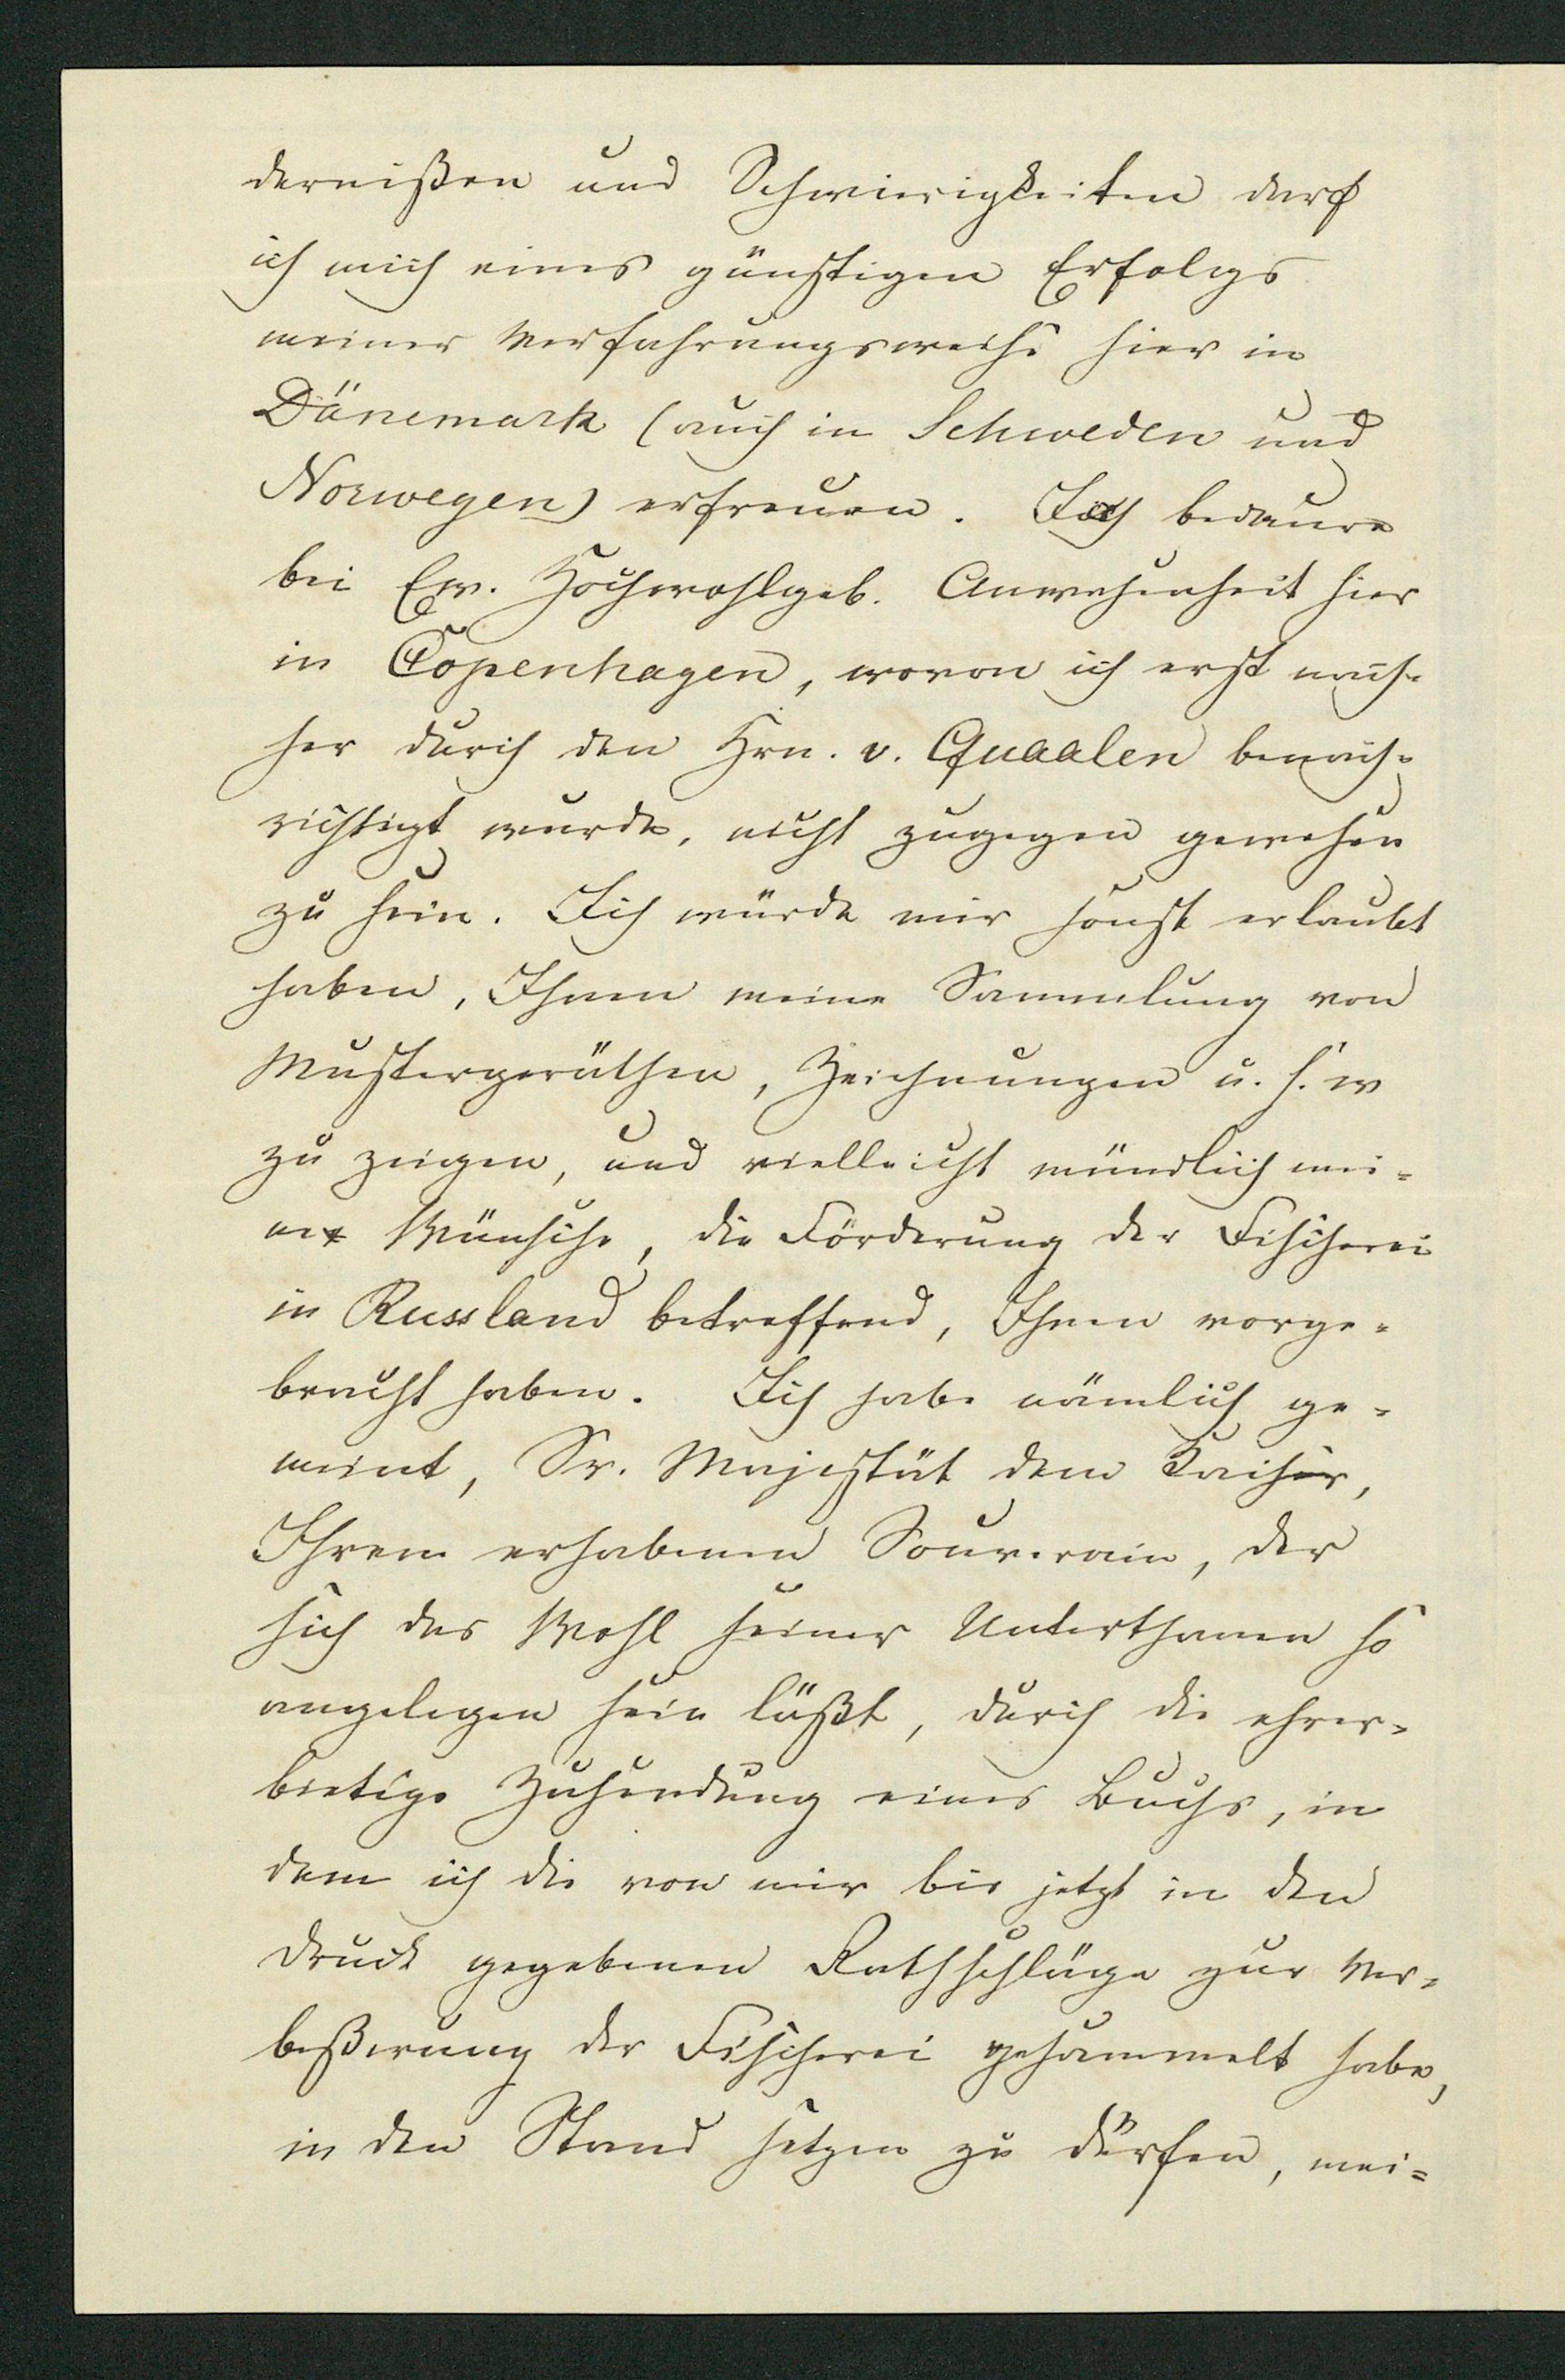 dernißen und Schwierigkeiten darf
ich mich eines günstigen Erfolgs
meiner Verfahrungsweise hier in
Dänemark (auch in Schweden und
Norwegen) erfreuen. Ich bedaure
bei Ew. Hochwohlgeb. Anwesenheit hier
in Copenhagen, wovon ich erst nach-
her durch den Hrn. v. Quaalen benach-
richtigt wurde, nicht zugegen gewesen
zu sein. Ich würde mir sonst erlaubt
haben, Ihnen meine Sammlung von
Mustergeräthen, Zeichnungen u. s. w
zu zeigen, und vielleicht mündlich mei-
ne Wünsche, die Förderung der Fischerei
in Russland betreffend, Ihnen vorge-
bracht haben. Ich habe nämlich ge-
meint, Sr. Majestät dem Kaiser,
Ihrem erhabenen Souverain, der
sich das Wohl seiner Unterthanen so
angelegen sein läßt, durch die ehrer-
bietige Zusendung eines Buchs, in
dem ich die von mir bis jetzt in den
Druck gegebenen Rathschläge zur Ver-
beßerung der Fischerei gesammelt habe,
in den Stand setzen zu dürfen, mei-